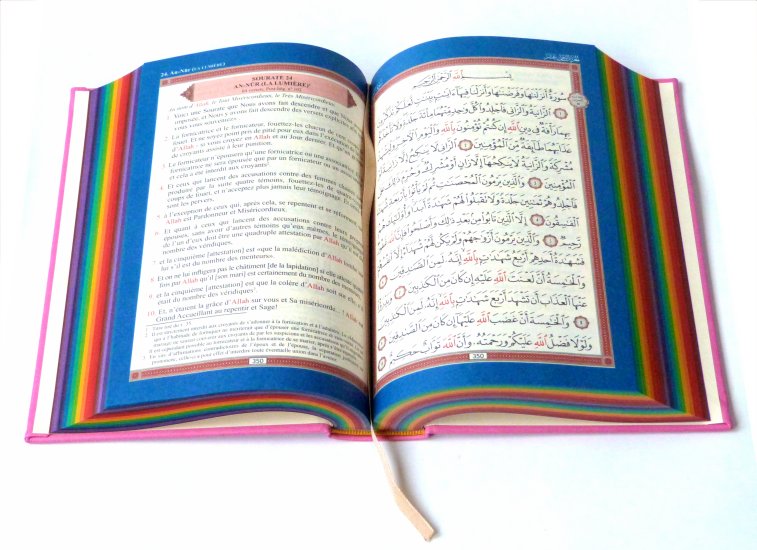 24. An-Nûr (LA LUMIÈRE)
SOURATE 24
AN-NÛR (LA LUMIÈRE)¹
64 versets
Au nom d'Allah, le Tout Miséricordieux, le Très Miséricordieux.
1. Voici une Sourate que Nous avons fait descendre et que Nous avons
imposée, et Nous y avons fait descendre des versets explicites
vous vous souveniez».
2. La fornicatrice et le fornicateur, fouettez-les chacun de cent coups de
fouet. Et ne soyez point pris de pitié pour eux dans l'exécution de la loi
d'Allah - si vous croyez en Allah et au Jour dernier. Et qu'un groupe
de croyants assiste à leur punition.
3. Le fornicateur n'épousera qu'une fornicatrice ou une associatrice. Et la
fornicatrice ne sera épousée que par un fornicateur ou un associateur;
et cela a été interdit aux croyants².
4. Et ceux qui lancent des accusations contre des femmes chastes sans
produire par la suite quatre témoins, fouettez-les de quatre-vingts
coups de fouet, et n'acceptez plus jamais leur témoignage. Et ceux-là
sont les pervers,
5. à l'exception de ceux qui, après cela, se repentent et se réforment,
Allah est Pardonneur et Miséricordieux.
6. Et quant à ceux qui lancent des accusations contre leurs propres
épouses, sans avoir d'autres témoins qu'eux mêmes, le témoignage
de l'un d'eux doit être une quadruple attestation par Allah qu'il est du
nombre des véridiques,
7. et la cinquième [attestation] est «que la malédiction d'Allah tombe sur
lui s'il est du nombre des menteurs».
8. Et on ne lui infligera pas le châtiment [de la lapidation] si elle atteste quatre
fois par Allah qu'il [son mari] est certainement du nombre des menteurs,
9. et la cinquième [attestation] est que la colère d'Allah soit sur elle, s'il
était du nombre des véridiques³.
10. Et, n'étaient la grâce d'Allah sur vous et Sa miséricorde...! Allah est
Grand Accueillant au repentir et Sage!
350
بِسْمِ اللَّهِ الرَّحْمَٰنِ الرَّحِيمِ
سُورَةٌ أَنزَلْنَٰهَا وَفَرَضْنَٰهَا وَأَنزَلْنَا فِيهَآ ءَايَٰتٍۭ بَيِّنَٰتٍ لَّعَلَّكُمْ تَذَكَّرُونَ
١ ٱلزَّانِيَةُ وَٱلزَّانِى فَٱجْلِدُوا۟ كُلَّ وَٰحِدٍ مِّنْهُمَا مِا۟ئَةَ جَلْدَةٍ وَلَا تَأْخُذْكُم
بِهِمَا رَأْفَةٌ فِى دِينِ ٱللَّهِ إِن كُنتُمْ تُؤْمِنُونَ بِٱللَّهِ وَٱلْيَوْمِ ٱلْءَاخِرِ وَلْيَشْهَدْ
عَذَابَهُمَا طَآئِفَةٌ مِّنَ ٱلْمُؤْمِنِينَ ٢ ٱلزَّانِى لَا يَنكِحُ إِلَّا زَانِيَةً أَوْ
مُشْرِكَةً وَٱلزَّانِيَةُ لَا يَنكِحُهَآ إِلَّا زَانٍ أَوْ مُشْرِكٌ وَحُرِّمَ ذَٰلِكَ عَلَى
ٱلْمُؤْمِنِينَ ٣ وَٱلَّذِينَ يَرْمُونَ ٱلْمُحْصَنَٰتِ ثُمَّ لَمْ يَأْتُوا۟ بِأَرْبَعَةِ شُهَدَآءَ
فَٱجْلِدُوهُمْ ثَمَٰنِينَ جَلْدَةً وَلَا تَقْبَلُوا۟ لَهُمْ شَهَٰدَةً أَبَدًا وَأُو۟لَٰٓئِكَ هُمُ
ٱلْفَٰسِقُونَ ٤ إِلَّا ٱلَّذِينَ تَابُوا۟ مِنۢ بَعْدِ ذَٰلِكَ وَأَصْلَحُوا۟ فَإِنَّ ٱللَّهَ غَفُورٌ
رَّحِيمٌ ٥ وَٱلَّذِينَ يَرْمُونَ أَزْوَٰجَهُمْ وَلَمْ يَكُن لَّهُمْ شُهَدَآءُ إِلَّآ أَنفُسُهُمْ
فَشَهَٰدَةُ أَحَدِهِمْ أَرْبَعُ شَهَٰدَٰتٍۭ بِٱللَّهِ إِنَّهُۥ لَمِنَ ٱلصَّٰدِقِينَ ٦
وَٱلْخَٰمِسَةُ أَنَّ لَعْنَتَ ٱللَّهِ عَلَيْهِ إِن كَانَ مِنَ ٱلْكَٰذِبِينَ ٧ وَيَدْرَؤُا۟
عَنْهَا ٱلْعَذَابَ أَن تَشْهَدَ أَرْبَعَ شَهَٰدَٰتٍۭ بِٱللَّهِ إِنَّهُۥ لَمِنَ ٱلْكَٰذِبِينَ
٨ وَٱلْخَٰمِسَةَ أَنَّ غَضَبَ ٱللَّهِ عَلَيْهَآ إِن كَانَ مِنَ ٱلصَّٰدِقِينَ ٩
وَلَوْلَا فَضْلُ ٱللَّهِ عَلَيْكُمْ وَرَحْمَتُهُۥ وَأَنَّ ٱللَّهَ تَوَّابٌ حَكِيمٌ
350